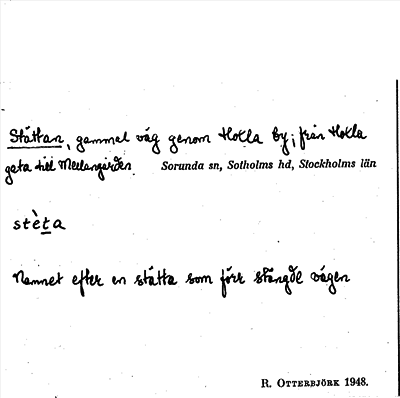 Stättan, gammel väg genom Hokla by; från Hokla
gata till Mellangården. Sorunda sn, Sotholms hd, Stockholms län
stèta
Namnet efter en stätta som förr stängde vägen
R. OTTERBJÖRK 1948.